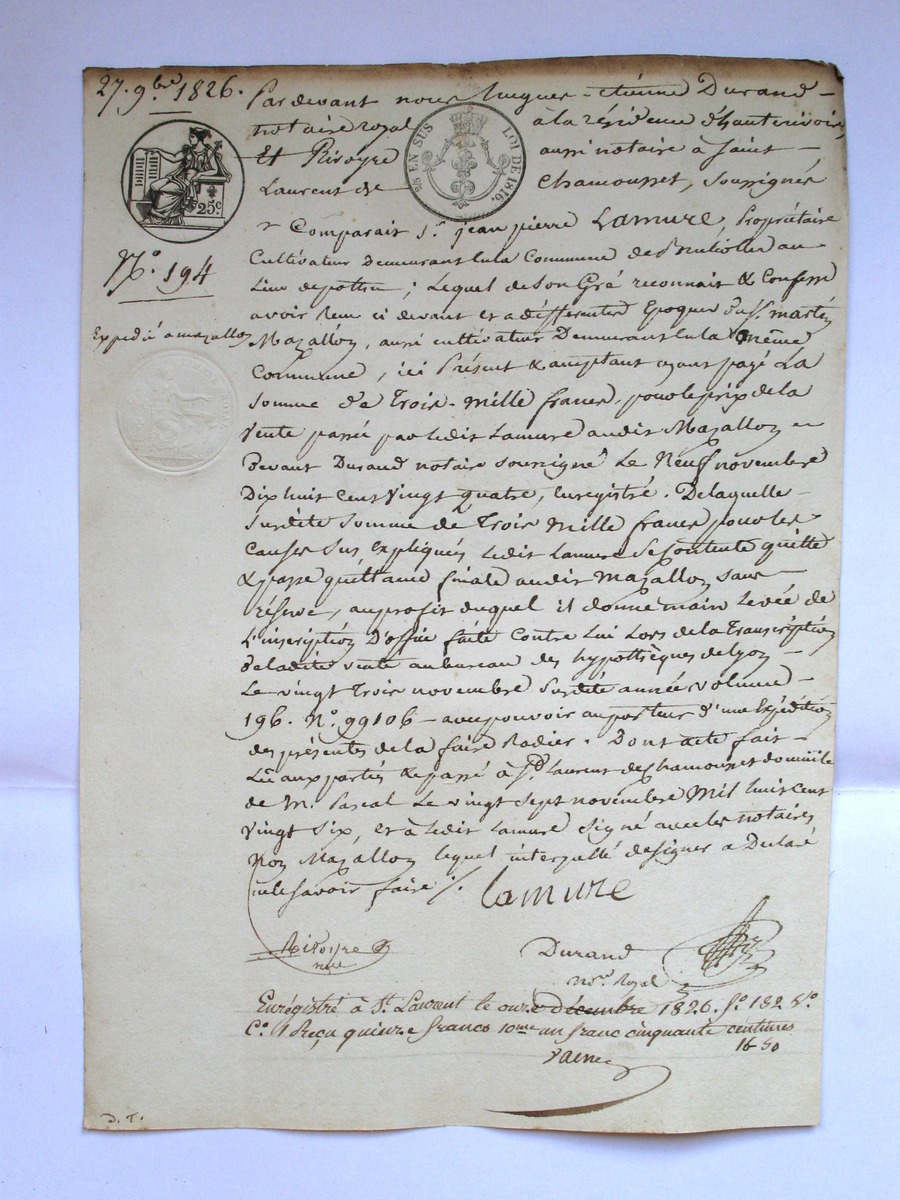 27. 9.bre 1826.
Pardevant nous hugues-étienne Durand
notaire royal à la résidence d'hauterivoire,
Et Rivoyre aussi notaire à saint
Laurent de Chamousset, soussignés
25 EN SUS LOI DE 1816.
25c.
Comparait Sr. jean pierre Lamure, Propriétaire
Cultivateur Demeurant en la Commune de
Lieu de ; Lequel de Son Gré reconnait & Confesse
N.o 194
avoir Reçu ci devant et a différentes Epoques du Sr. martin
Expedié a mazallon
Mazallon, aussi cultivateur Demeurant en la même
Commune, ici Présent & acceptant ayant payé La
Somme de Trois-mille francs, pour le prix de la
Vente passée par ledit Lamure audit Mazallon
Devant Durand notaire soussigné Le Neuf novembre
Dix huit cent Vingt quatre, enregistré. De laquelle
Susdite Somme de Trois Mille francs pour les
Causes Sus expliquées ledit Lamure Se Contente quitte
& passe quittance finale audit Mazallon sans
réserve, au profit duquel il donne main Levée de
L'inscription D'office faite Contre Lui Lors de la Transcription
De ladite vente au bureau des hypothèques de Lyon
Le vingt Trois novembre Susdite année volume
196. No. 99106 - avec pouvoir au porteur d'une Expédition
des présentes de la faire Radier. Dont acte fait
Lu aux parties & passé à St. Laurent de Chamousset domicile
de M. Pascal Le vingt Sept novembre Mil huit Cent
Vingt Six, et a ledit Lamure Signé avec les notaires
Non Mazallon lequel interpellé de signer a Declaré
ne le savoir faire ./.
Lamure
Rivoyre
nre
Durand
no.re Royal
Enregistré à St. Laurent le onze décembre 1826. fo. 182 Vo.
C.e 1 Reçu quinze francs 10me un franc cinquante centimes
16 50
D. T.